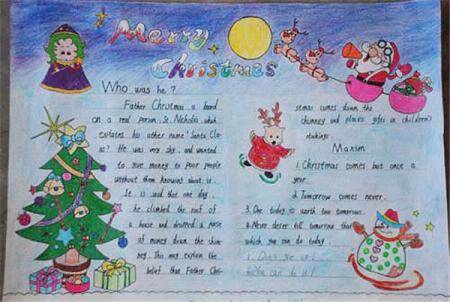 Merry
Christmas
Who was he?
Father Christmas a based
on a real person, St. Nicholas which
explains his other name' Santa Clo-
aus? He was very shy, and wanted
to give money to poor people
without them knowing about it.
It is said that one day,
he climbed the roof of
a house and dropped a purse
of money down the chim-
ney. This may explain the
belief that Father Chri-
stmas comes down the
chimney and places gifts in children's
stockings.
Maxim
1. Christmas comes but once a
year
2. Tomorrow comes never.
3. One today is worth two tomorrows.
4. Never defer till tomorrow that
which you can do today.